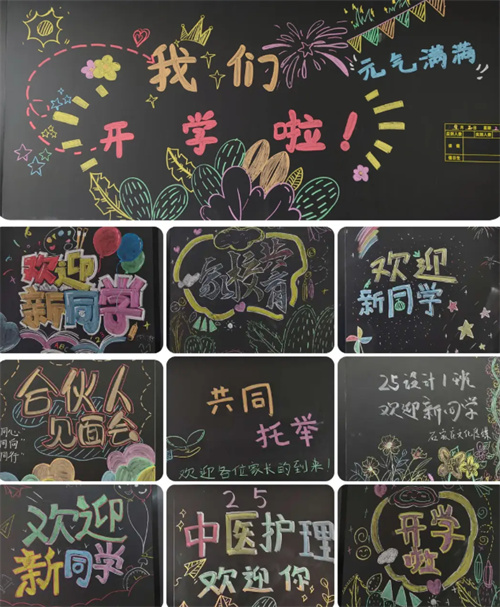 我们
元气满满
开学啦！
欢迎
新同学
欢迎
新同学
合伙人
见面会
同心
同向
同行
共同
托举
欢迎各位家长的到来！
25设计1班
欢迎新同学
欢迎
新同学
25
中医护理
欢迎你
开学
啦